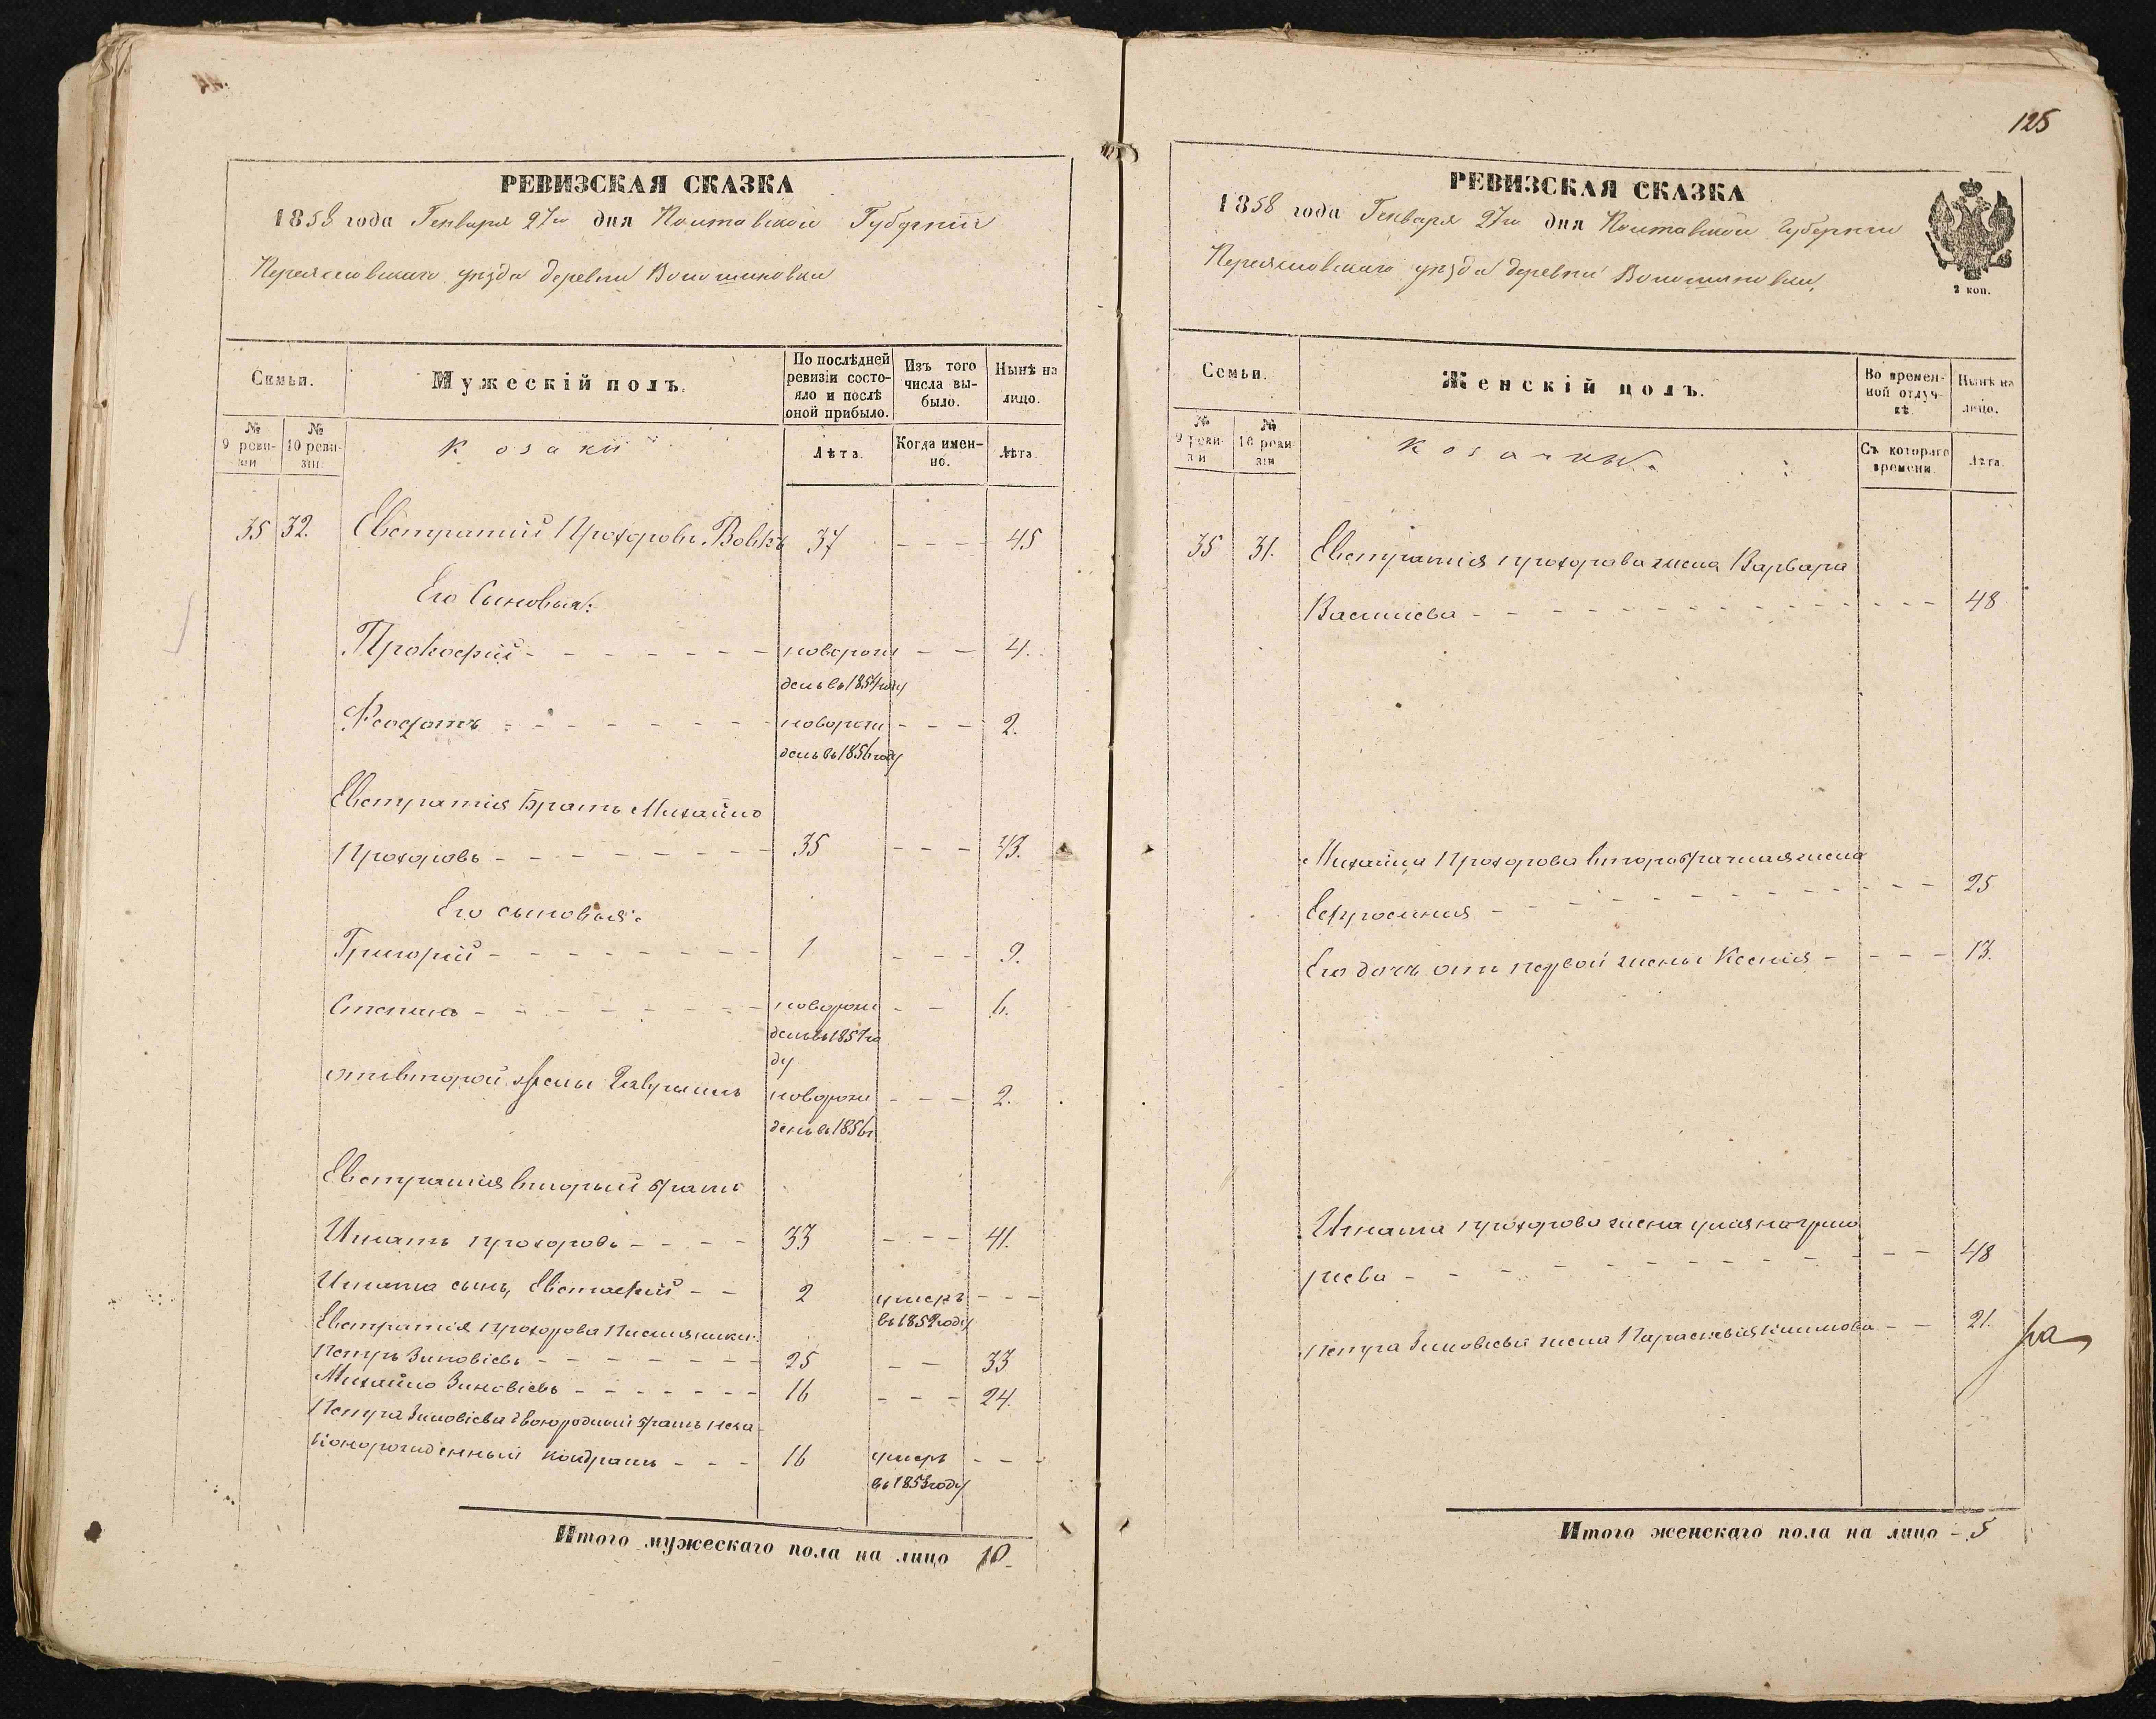 РЕВИЗСКАЯ СКАЗКА
1858 года Генваря 27го дня Полтавской Губернии
Переяславскаго уезда деревни Волошиновки
Семьи.
Мужескій полъ.
По послѣдней ревизіи состояло и послѣ оной прибыло.
Изъ того числа выбыло.
Нынѣ на лицо.
№ 9 ревизіи
№ 10 ревизіи.
Козаки
Лѣта.
Когда именно.
Лѣта.
35 32. Евстратий Прохоровъ Вовкъ 37 - - - 45
Его Сыновья:
Прокофий - - - - - - - новорож - - 4.
денъ въ 1854 году
Феофанъ - - - - - - - новорож - - - 2.
денъ въ 1856 году
Евстратия Братъ Михайло
Прохоровъ - - - - - - - 35 - - - 43.
Его сыновья:
Григорий - - - - - - - 1 - - - 9.
Степанъ - - - - - - - новорож - - 6.
денъ въ 1851 го
ду
отъ второй жены Гавриилъ новорож - - - 2.
денъ въ 1856 г
Евстратия вторый братъ
Игнатъ прохоровъ - - - - 33 - - - 41.
Игната сынъ, Евстафий - - 2 умеръ - - -
въ 1852 году
Евстратия прохорова Племяники:
Петръ Зиновіевъ - - - - - - - 25 - - 33
Михайло Зиновіевъ - - - - - - - 16 - - - 24.
Петра Зиновіева двоюродный братъ неза
конорожденный Кондратъ - - - 16 умеръ - - -
въ 1853 году
Итого мужескаго пола на лицо 10.
125
РЕВИЗСКАЯ СКАЗКА
1858 года Генваря 27го дня Полтавской Губернии
Переяславскаго уезда деревни Волошиновки,
2 коп.
Семьи.
Женскій полъ.
Во временной отлучкѣ.
Нынѣ на лицо.
№ 9 ревизіи
№ 10 ревизіи
Козачки.
Съ котораго времени.
Лѣта.
35 31. Евстратия прохорова жена Варвара
Василиева - - - - - - - - - - - - 48
Михайла Прохорова второбрачная жена
Ефросиния - - - - - - - - - - - - 25
Его дочь отъ первой жены Ксения - - - - 13.
Игната прохорова жена Улияна григо
риева - - - - - - - - - - - - 48
Петра Зиновіева жена Параскевия Климова - - 21.
Итого женскаго пола на лицо - 5